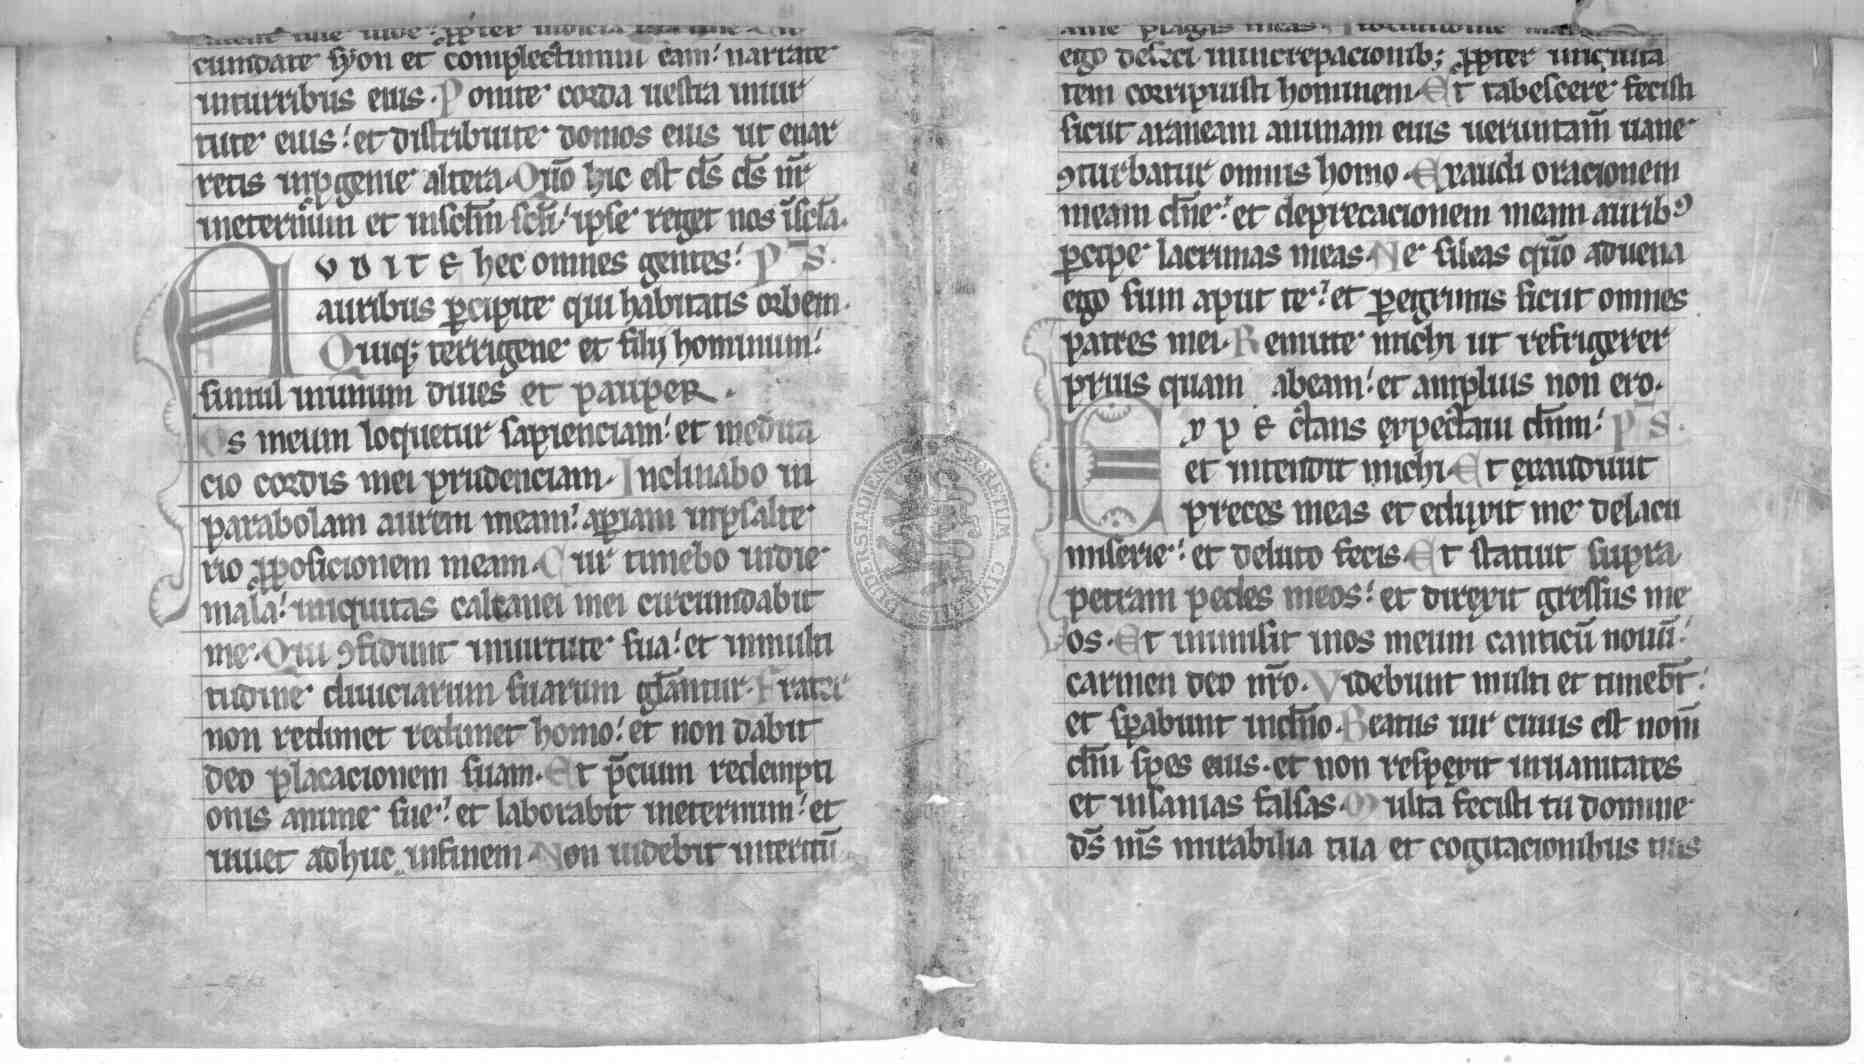 cumdate syon et complectimini eam: narrate
inturribus eius. Ponite corda uestra inuir
tute eius: et distribuite domos eius ut enar
retis inpgenie altera. Quō hic est ds̄ ds̄ nr̄
ineternum et insclm̄ scli: ipse reget nos ī scla.
AUDITE hec omnes gentes: ps.
auribus pcipite qui habitatis orbem.
Quiq; terrigene et filij hominum:
simul inunum diues et pauper.
Os meum loquetur sapienciam: et medita
cio cordis mei prudenciam. Inclinabo in
parabolam aurem meam: apiam inpsalte
rio pposicionem meam. Cur timebo indie
mala: iniquitas calcanei mei circumdabit
me. Qui ꝯfidunt inuirtute sua: et inmulti
tudine diuiciarum suarum glāntur. Frater
non redimet redimet homo: et non dabit
deo placacionem suam. Et p̄cium redempti
onis anime sue: et laborabit ineternum: et
uiuet adhuc infinem. Non uidebit interitū
ego defeci inincrepacionib; ppter iniquita
tem corripuisti hominem. Et tabescere fecisti
sicut araneam animam eius ueruntam̄ uane
ꝯturbatur omnis homo. Exaudi oracionem
meam dn̄e: et deprecacionem meam aurib⁹
pcipe lacrimas meas. Ne sileas quō aduena
ego sum aput te: et pegrinus sicut omnes
patres mei. Remitte michi ut refrigerer
prius quam abeam: et amplius non ero.
EXPEctans expectaui dn̄m: ps.
et intendit michi. Et exaudiuit
preces meas et eduxit me delacu
miserie: et deluto fecis. Et statuit supra
petram pedes meos: et direxit gressus me
os. Et inmisit inos meum canticū nouū:
carmen deo nr̄o. Videbunt multi et timebt̄:
et spabunt indn̄o. Beatus uir cuius est nom̄
dn̄i spes eius. et non respexit inuanitates
et insanias falsas. Multa fecisti tu domine
ds̄ ms̄ mirabilia tua et cogitacionibus tuis